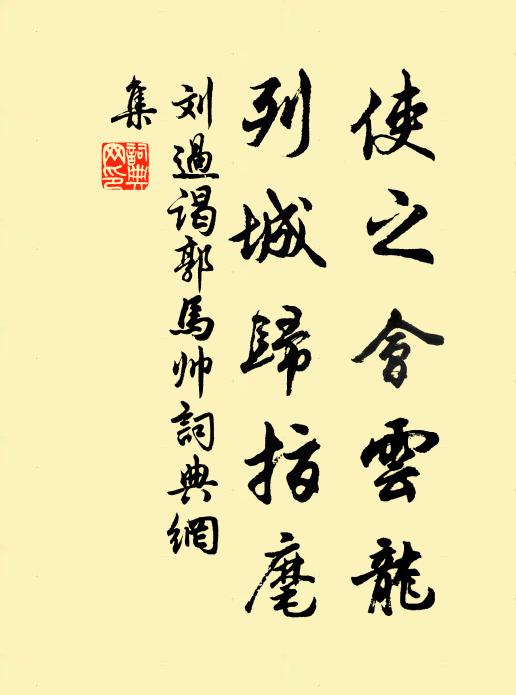 使之會雲龍
列城歸指麾
刘過谒郭馬帅詞典網
集
詞典網印